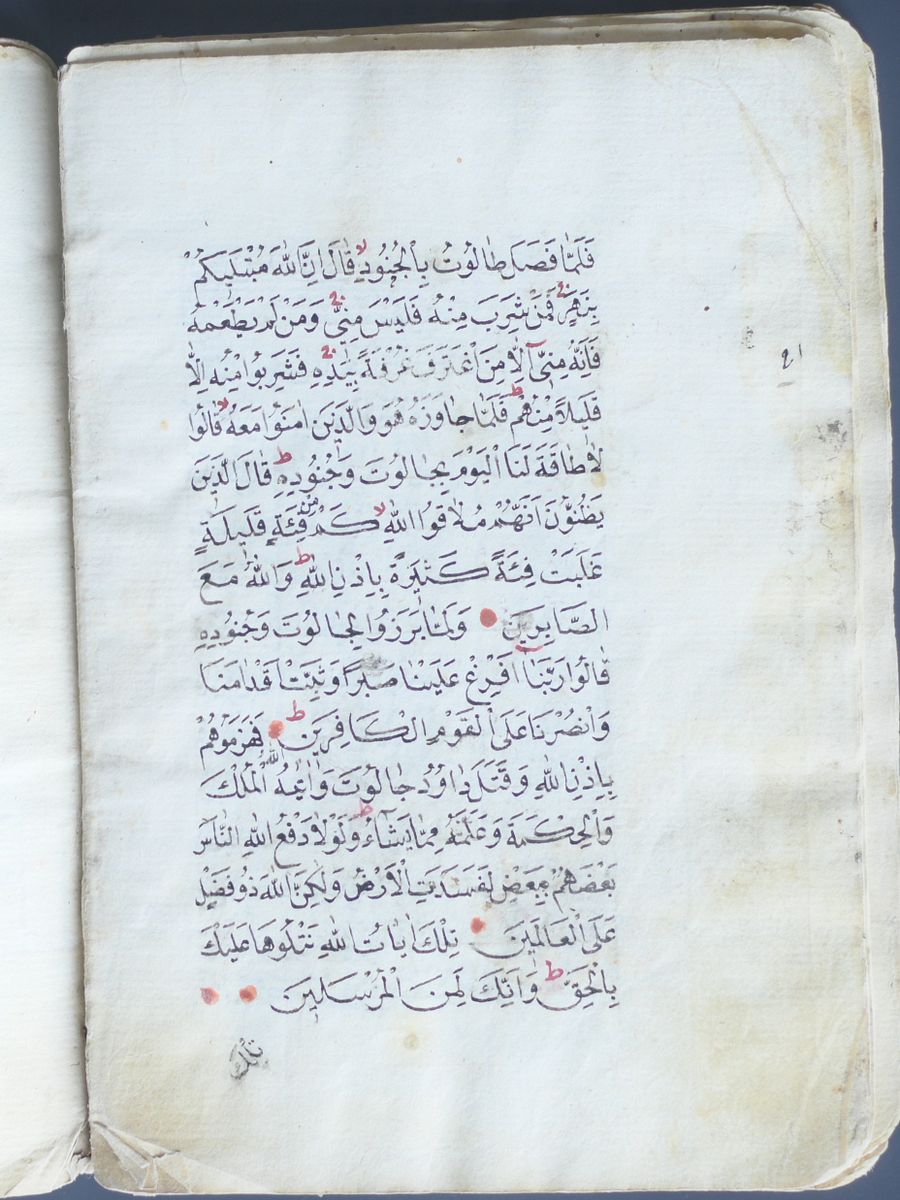 فَلَمَّا فَصَلَ طَالُوتُ بِالْجُنُودِ ۙ قَالَ اِنَّ اللّٰهَ مُبْتَلِيكُمْ
بِنَهَرٍ ۚ فَمَنْ شَرِبَ مِنْهُ فَلَيْسَ مِنِّى ۚ وَمَنْ لَمْ يَطْعَمْهُ
٢١
فَاِنَّهُ مِنِّىٓ اِلَّا مَنِ اغْتَرَفَ غُرْفَةً بِيَدِهِ ۚ فَشَرِبُوا مِنْهُ اِلَّا
قَلِيلًا مِنْهُمْ ط فَلَمَّا جَاوَزَهُ هُوَ وَالَّذِينَ اٰمَنُوا مَعَهُ ۙ قَالُوا
لَا طَاقَةَ لَنَا الْيَوْمَ بِجَالُوتَ وَجُنُودِهِ ط قَالَ الَّذِينَ
يَظُنُّونَ اَنَّهُمْ مُلَاقُوا اللّٰهِ ۙ كَمْ مِنْ فِئَةٍ قَلِيلَةٍ
غَلَبَتْ فِئَةً كَثِيرَةً بِاِذْنِ اللّٰهِ ط وَاللّٰهُ مَعَ
الصَّابِرِينَ وَلَمَّا بَرَزُوا لِجَالُوتَ وَجُنُودِهِ
قَالُوا رَبَّنَا اَفْرِغْ عَلَيْنَا صَبْرًا وَثَبِّتْ اَقْدَامَنَا
وَانْصُرْنَا عَلَى الْقَوْمِ الْكَافِرِينَ ط فَهَزَمُوهُمْ
بِاِذْنِ اللّٰهِ وَقَتَلَ دَاوُدُ جَالُوتَ وَاٰتٰيهُ اللّٰهُ الْمُلْكَ
وَالْحِكْمَةَ وَعَلَّمَهُ مِمَّا يَشَآءُ ط وَلَوْلَا دَفْعُ اللّٰهِ النَّاسَ
بَعْضَهُمْ بِبَعْضٍ لَفَسَدَتِ الْاَرْضُ وَلٰكِنَّ اللّٰهَ ذُو فَضْلٍ
عَلَى الْعَالَمِينَ تِلْكَ اٰيَاتُ اللّٰهِ نَتْلُوهَا عَلَيْكَ
بِالْحَقِّ ط وَاِنَّكَ لَمِنَ الْمُرْسَلِينَ
تِلْكَ